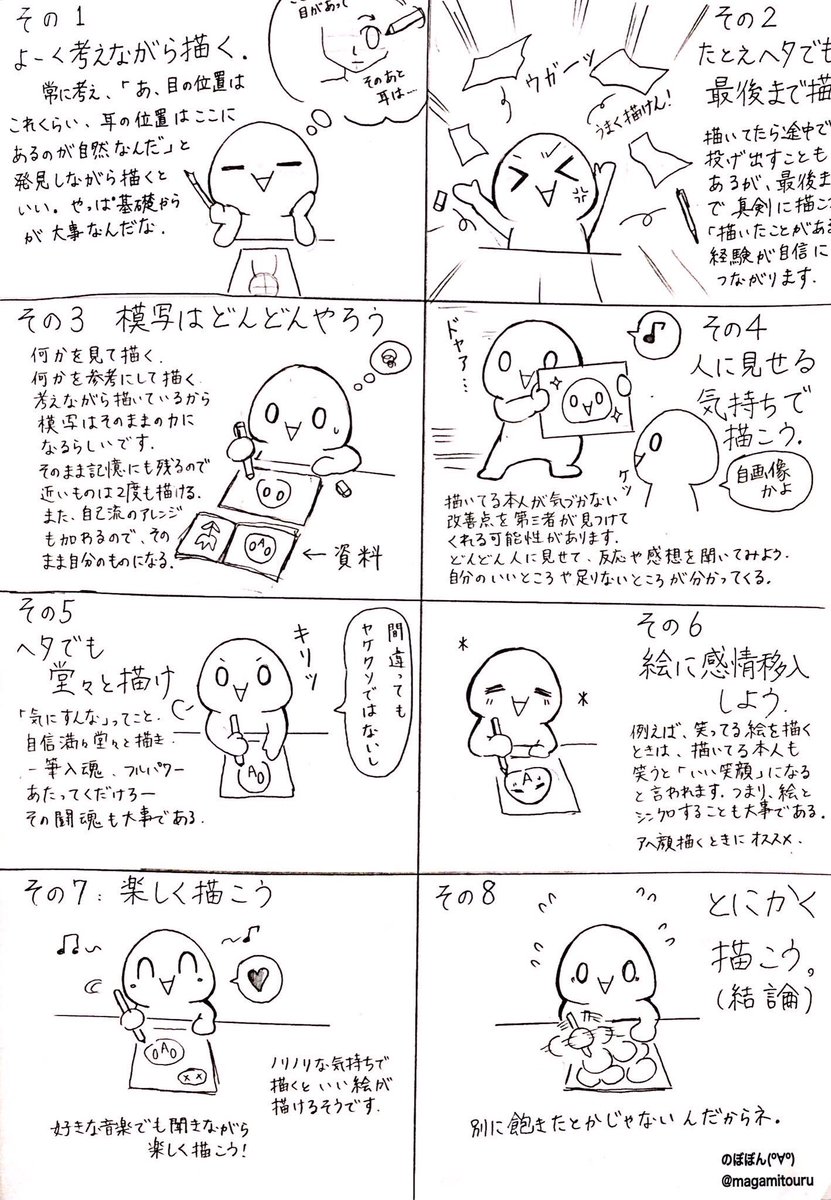 その1
よーく考えながら描く.
常に考え、「あ、目の位置は
これくらい、耳の位置はここに
あるのが自然なんだ」と
発見しながら描くと
いい。やっぱ基礎から
が大事なんだな.
目があって
そのあと
耳は…
その2
たとえヘタでも
最後まで描
ウガーッ
うまく描けん!
描いてたら途中で
投げ出すことも
あるが、最後ま
で真剣に描こ
「描いたことがある
経験が自信に
つながります.
その3 模写はどんどんやろう
何かを見て描く.
何かを参考にして描く.
考えながら描いているから
模写はそのままの力に
なるらしいです.
そのまま記憶にも残るので
近いものは2度も描ける.
また、自己流のアレンジ
も加わるので、その
まま自分のものになる.
←資料
その4
人に見せる
気持ちで
描こう.
ドヤァ…
ケッ
自画像
かよ
描いてる本人が気づかない
改善点を第三者が見つけて
くれる可能性があります.
どんどん人に見せて、反応や感想を聞いてみよう.
自分のいいところや足りないところが分かってくる.
その5
ヘタでも
堂々と描け
「気にすんな」ってこと.
自信満々堂々と描き.
一筆入魂、フルパワー
あたってくだけろー
その闘魂も大事である.
キリッ
間違っても
ヤケクソではないし
その6
絵に感情移入
しよう.
例えば、笑ってる絵を描く
ときは、描いてる本人も
笑うと「いい笑顔」になる
と言われます.つまり、絵と
シンクロすることも大事である.
アヘ顔描くときにオススメ.
その7:楽しく描こう
ノリノリな気持ちで
描くといい絵が
描けるそうです.
好きな音楽でも聞きながら
楽しく描こう!
その8
とにかく
描こう。
(結論)
別に飽きたとかじゃないんだからネ.
のぼぼん(º∀º)
@magamitouru